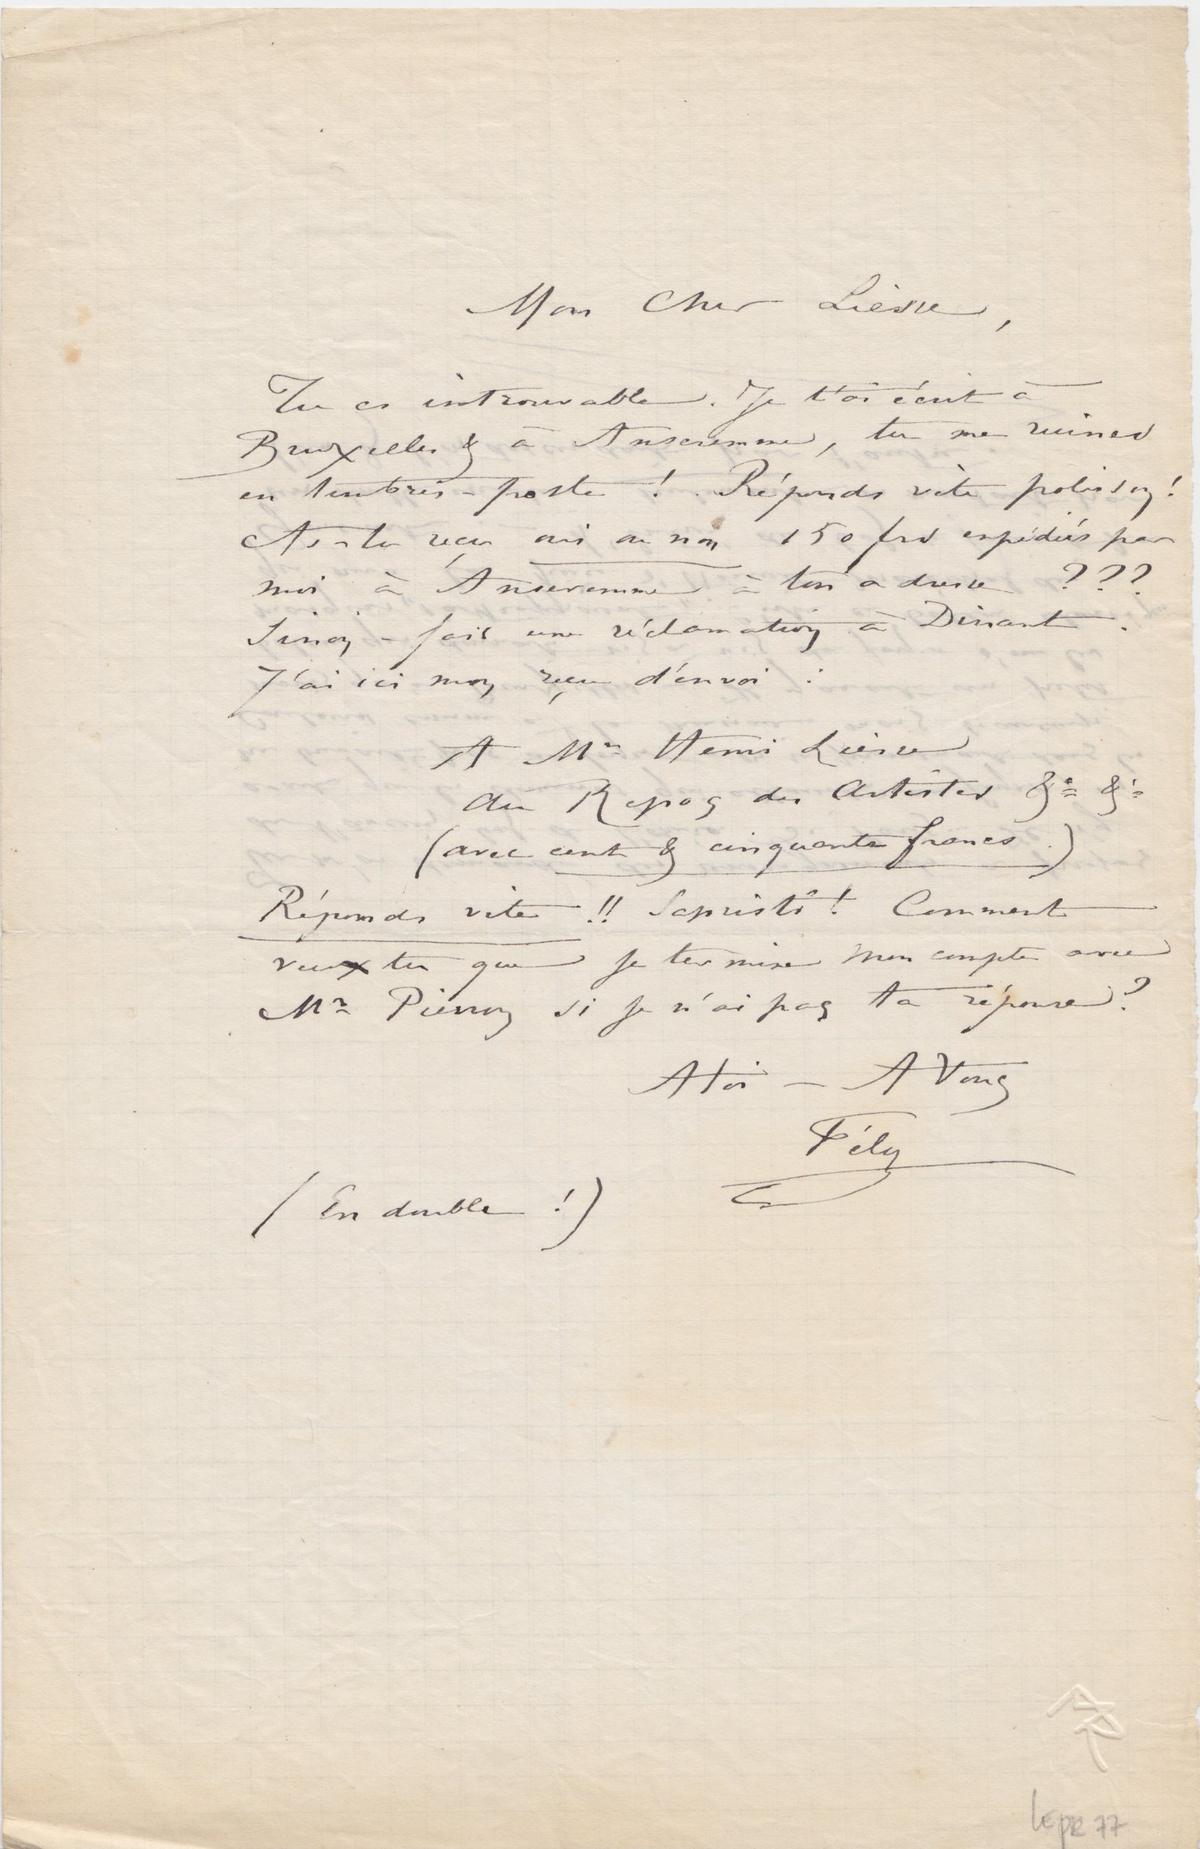 Mon Cher Liesse,
Tu es introuvable. Je t'ai écrit à
Bruxelles & à Anseremme, tu me ruines
en timbres-poste ! Réponds vite polisson !
As-tu reçu oui ou non 150 frs expédiés par
moi à Anseremme à ton adresse ???
Sinon - fais une réclamation à Dinant.
J'ai ici mon reçu d'envoi :
A Mr Henri Liesse
Au Repos des Artistes &a &a
(avec cent & cinquante francs.)
Réponds vite !! Sapristi ! Comment
veux tu que je termine mon compte avec
Mr Pierron si je n'ai pas ta réponse ?
A toi - A Vous
Fély
(En double !)
LEpR 77